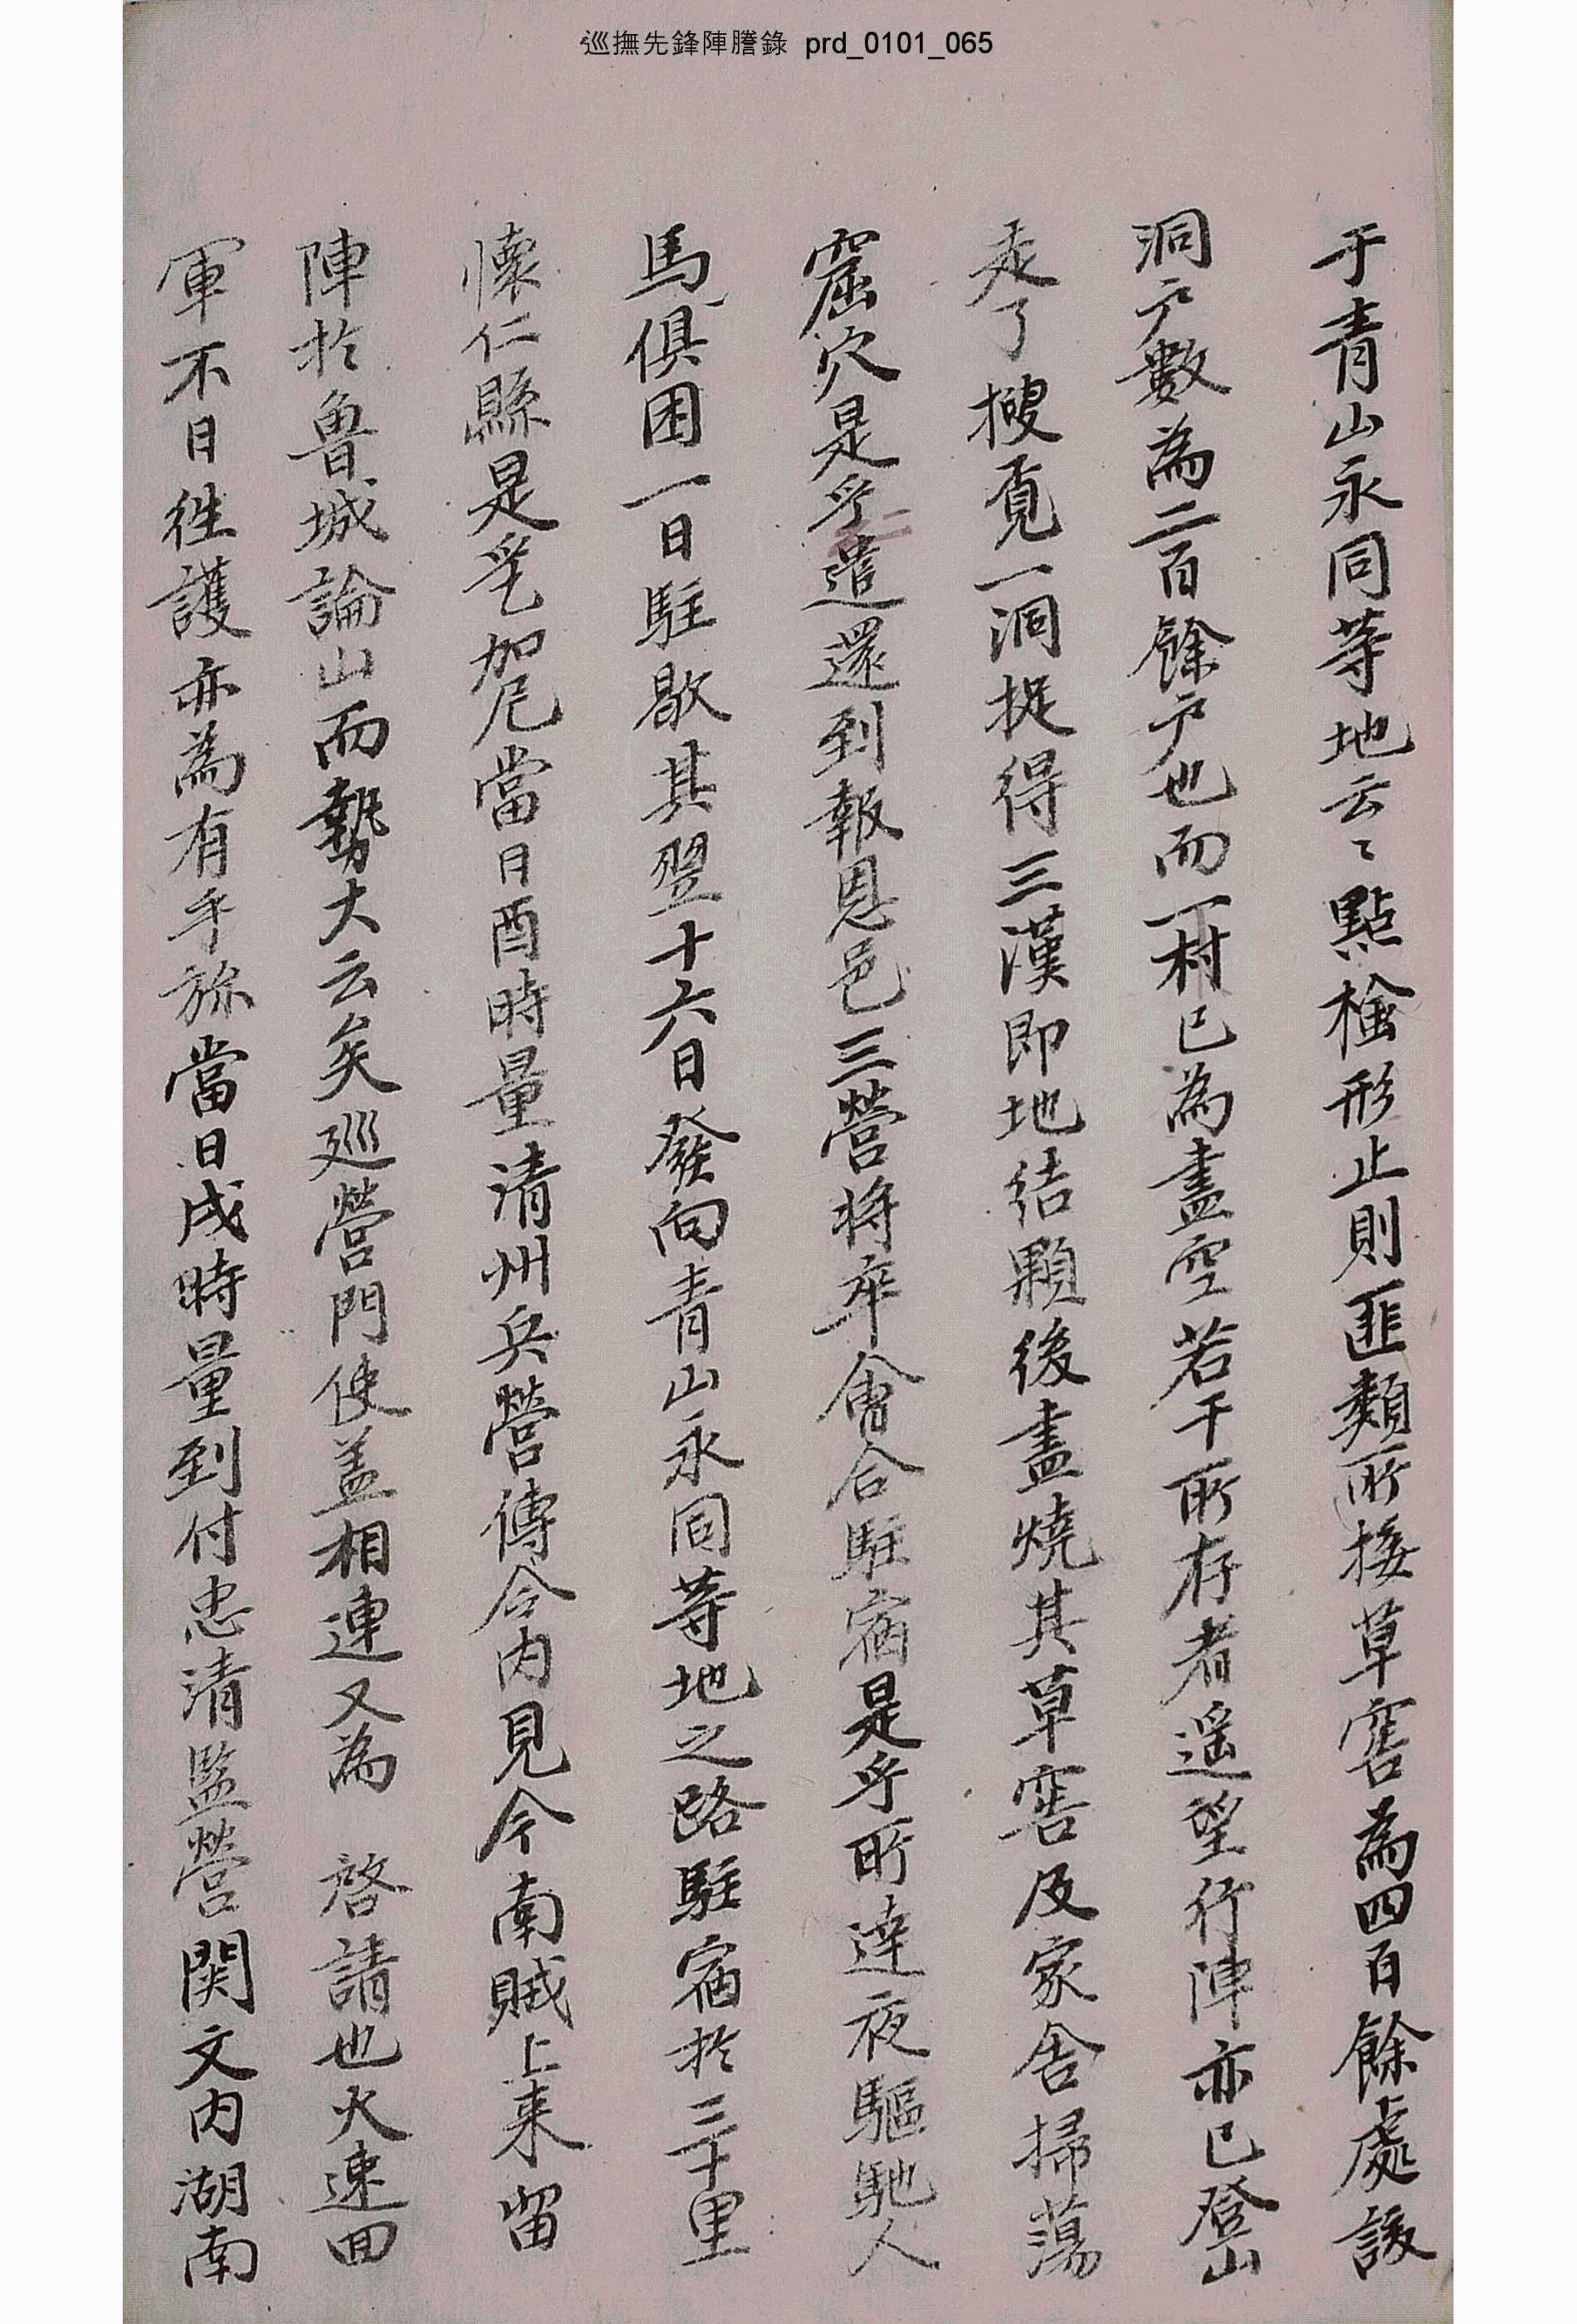 巡撫先鋒陣謄錄 prd_0101_065
于青山永同等地云〻點檢形止則匪類所接草窖為四百餘處該
洞戶數為二百餘戶也而一村已為盡空若干所存者遥望行陣亦已登山
走了搜覓一洞捉得三漢即地結顆後盡燒其草窖及家舍掃蕩
窟穴是乎遣還到報恩邑三營將卒會合駐宿是乎所達夜驅馳人
馬俱困一日駐歇其翌十六日發向青山永同等地之路駐宿於三十里
懷仁縣是乎加尼當日酉時量清州兵營傳令內見今南賊上来留
陣於魯城論山而勢大云矣巡營門使盖相連又為 啓請也火速回
軍不日徃護亦為有乎旀當日戌時量到付忠清監營関文内湖南